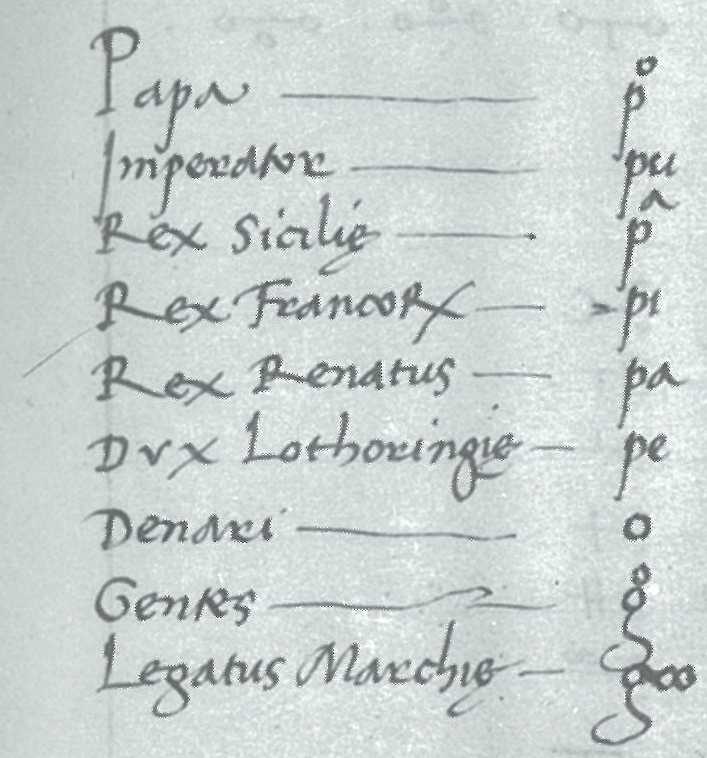 Papa — p°
Imperator — pu
Rex Sicilię — pᵃ
Rex Francoꝝ — pi
Rex Renatus — pa
Dvx Lothoringię — pe
Denari — o
Gentes — g°
Legatus Marchię — goo